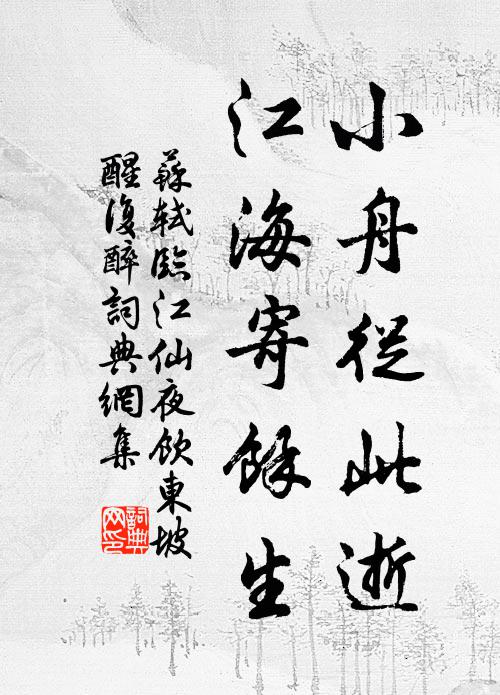 小舟從此逝
江海寄餘生
蘇軾臨江仙夜飲東坡
醒復醉詞典網集
詞典
网印